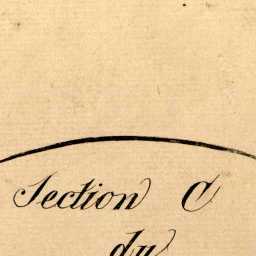 Section C
du